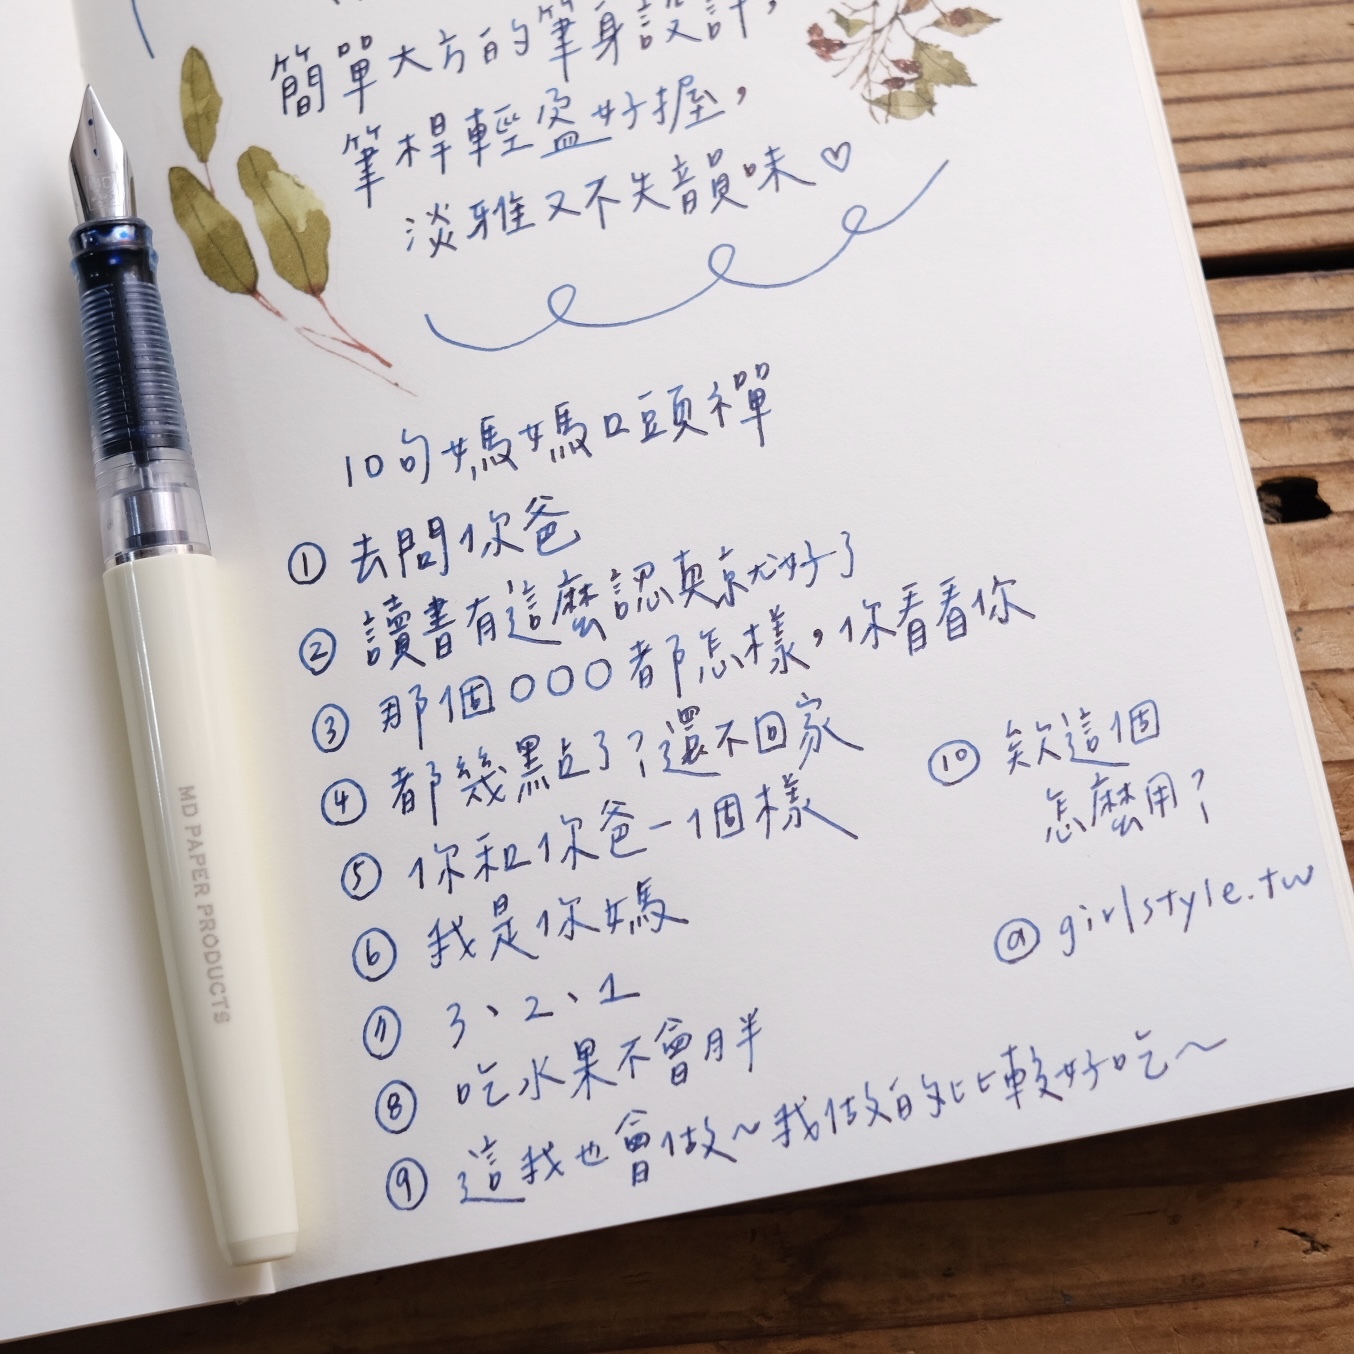 簡單大方的筆身設計，
筆桿輕盈好握，
淡雅又不失韻味♡
10句媽媽口頭禪
① 去問你爸
② 讀書有這麼認真就好了
③ 那個○○○都怎樣，你看看你
④ 都幾點了？還不回家
⑤ 你和你爸一個樣
⑥ 我是你媽
⑦ 3、2、1
⑧ 吃水果不會胖
⑨ 這我也會做～我做的比較好吃～
⑩ 欸這個
怎麼用？
@girlstyle.tw
MD PAPER PRODUCTS